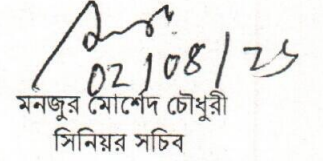 02/08/25
মনজুর মোর্শেদ চৌধুরী
সিনিয়র সচিব